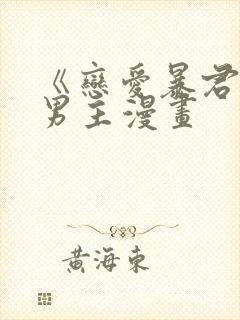 《戀愛暴君
男主漫畫
黃海東